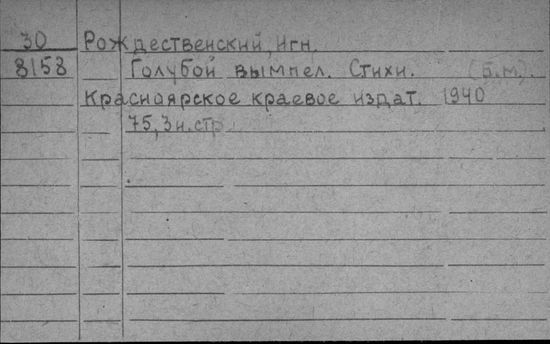 30 Рождественский, Игн.
8158 Голубой вымпел. Стихи. (Б.м.).
Красноярское краевое издат. 1940
75, 3 н. стр.